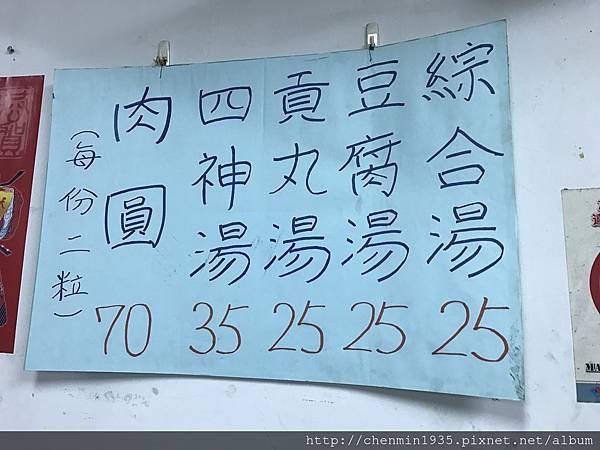 綜合湯 25
豆腐湯 25
貢丸湯 25
四神湯 35
肉圓 70
(每份二粒)
http://chenmin1935.pixnet.net/album